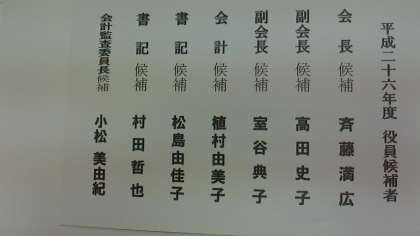 平成二十六年度 役員候補者
会長 候補 斉藤満広
副会長 候補 高田史子
副会長 候補 室谷典子
会計 候補 植村由美子
書記 候補 松島由佳子
書記 候補 村田哲也
会計監査委員長候補 小松美由紀